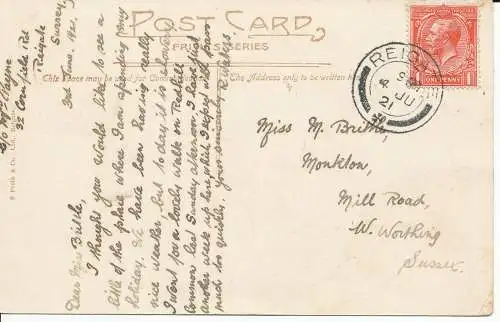 POST CARD
FRITH'S SERIES
This Space may be used for
The Address only to be written
REIGATE
JU
21
ONE PENNY
Miss M. Brittle,
Monkton,
Mill Road,
W. Worthing
Sussex.
32 Cornfield Rd
Reigate
Surrey
3rd June.
Dear Miss Brittle,
I thought you would like to see a
little of the place where I am spending my
holiday. We have been having really
nice weather, but to day it is
I went for a lovely walk on Redhill
Common last Sunday afternoon. I have just
another week up here which I expect will pass
much too quickly. Yours sincerely